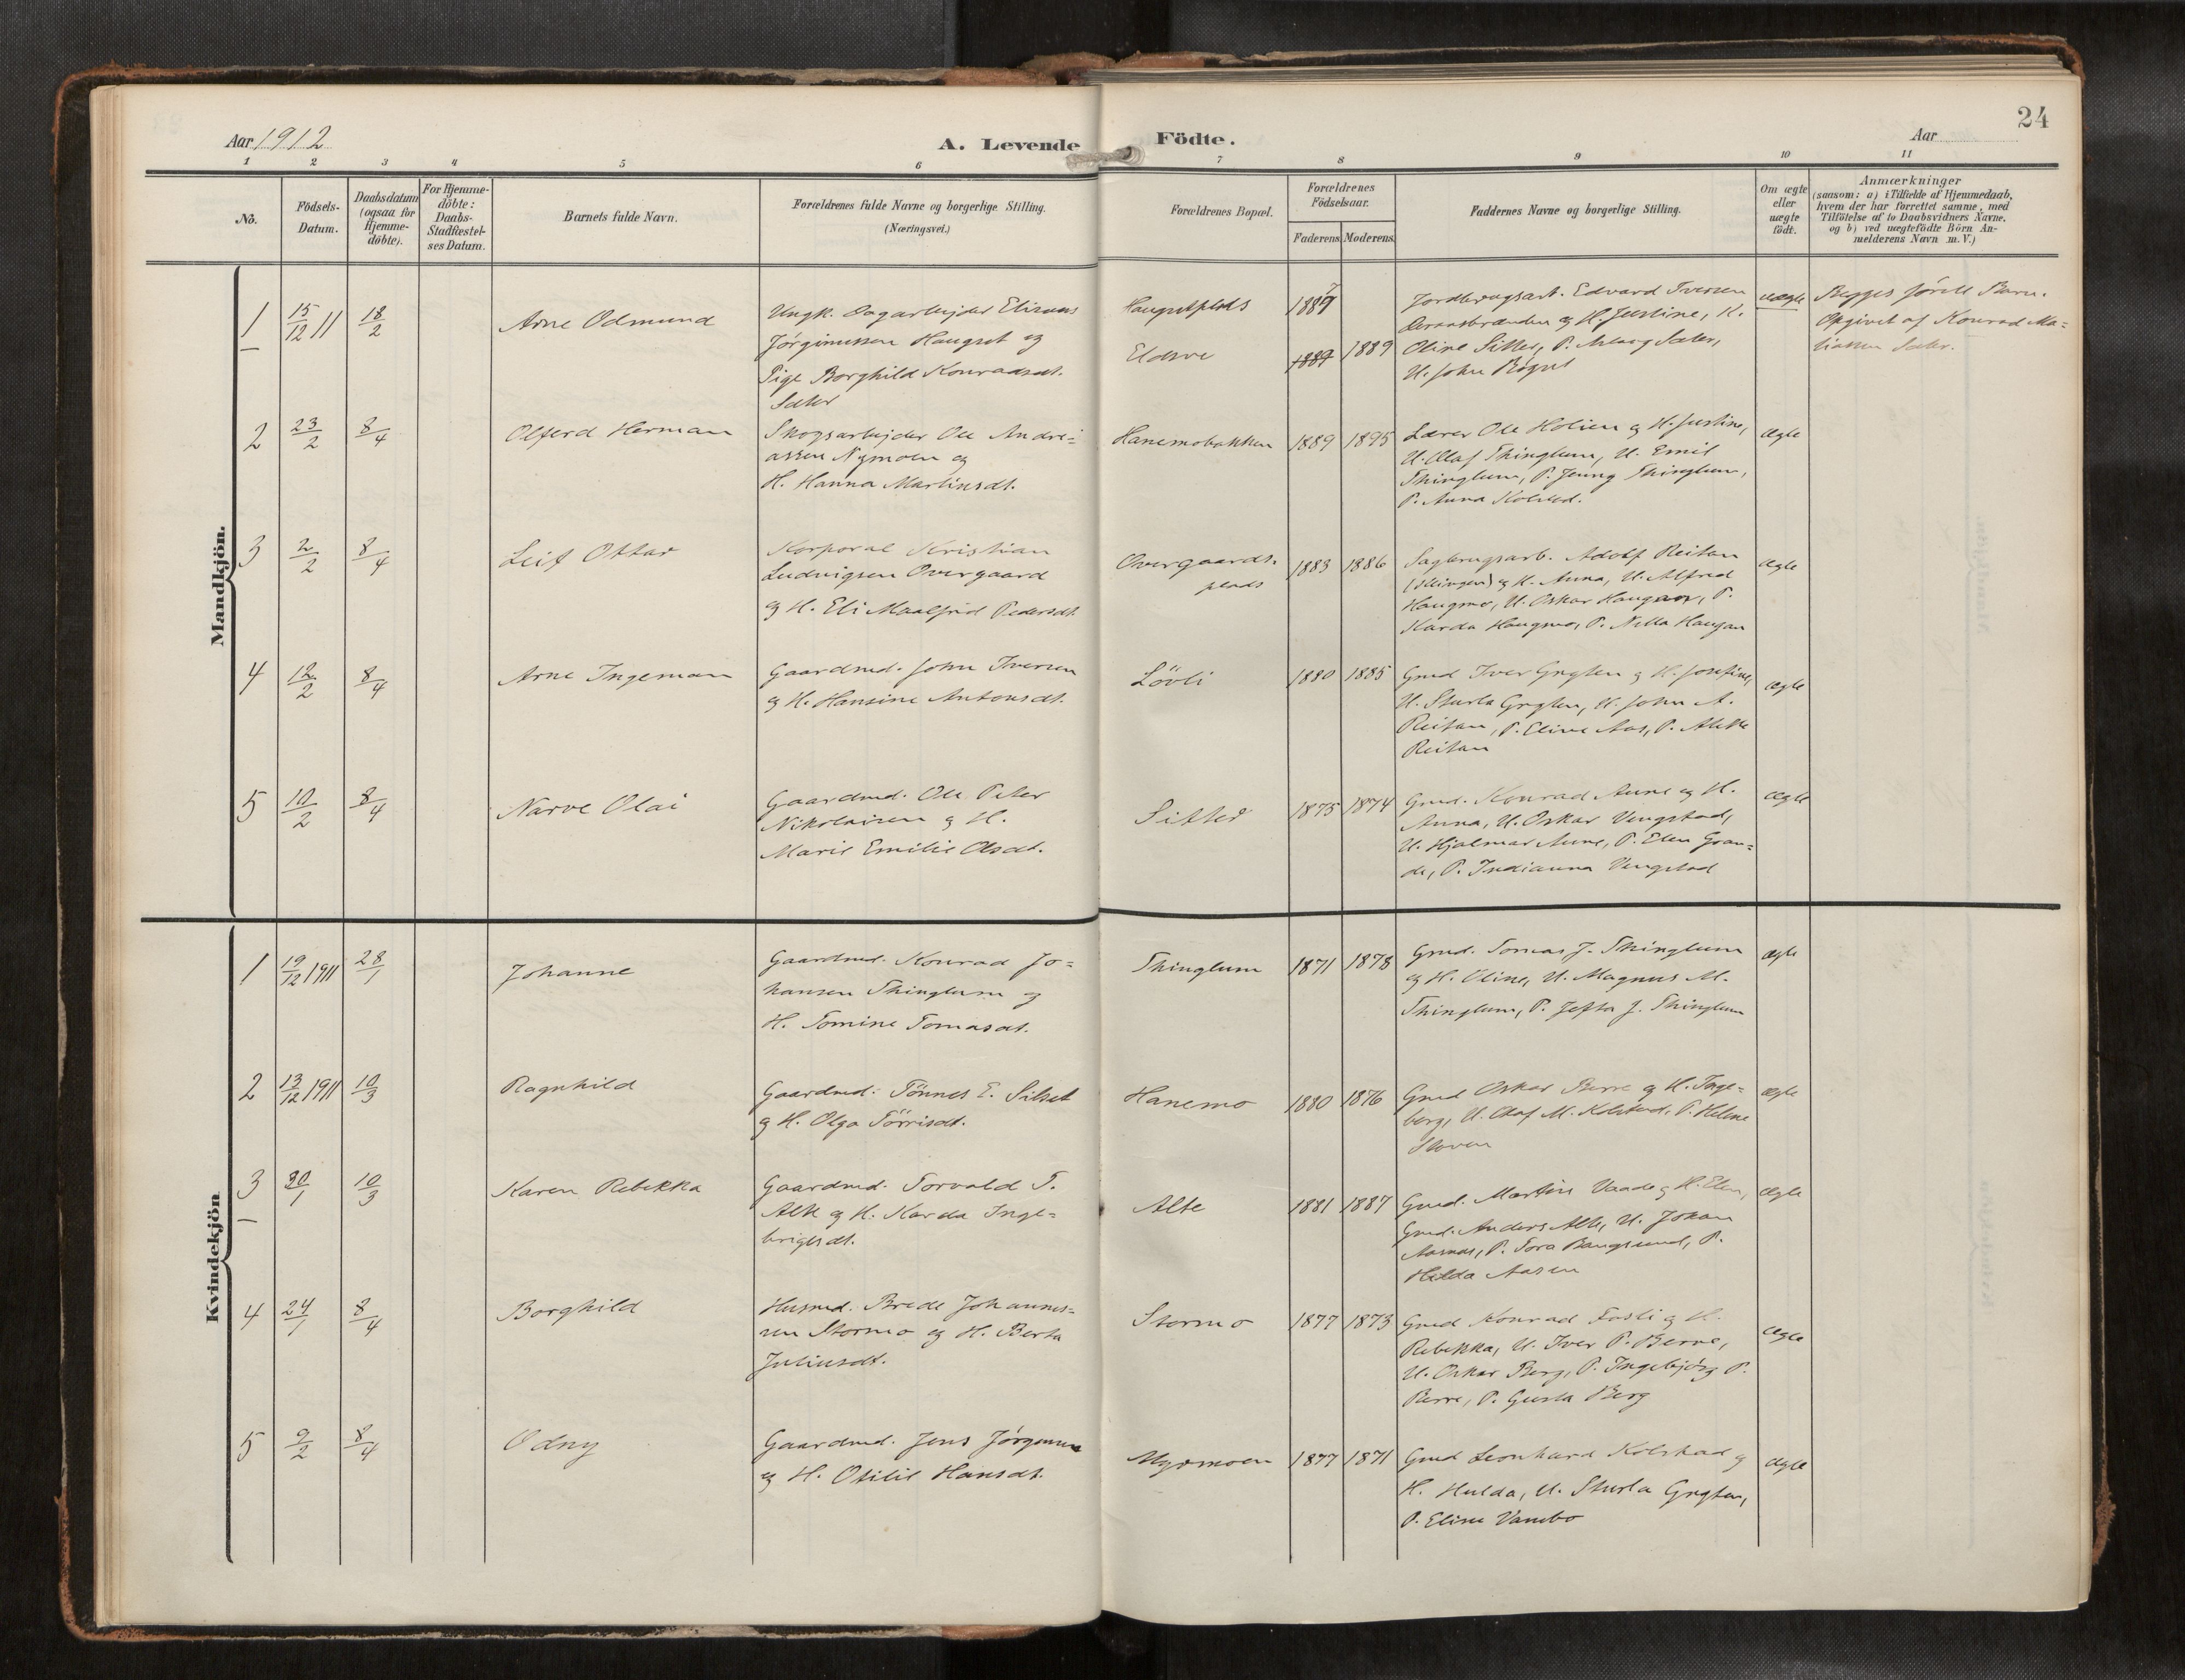 24
Aar 1912
A. Levende Födte.
Aar
1 2 3 4 5 6 7 8 9 10 11
Nö.
Födsels-
Datum.
Daabsdatum
(ogsaa for
Hjemme-
döbte).
For Hjemme-
döbte:
Daabs-
Stadfæstel-
ses Datum.
Barnets fulde Navn.
Forældrenes fulde Navne og borgerlige Stilling.
(Næringsvei.)
Forældrenes Bopæl.
Forældrenes
Födselsaar.
Faderens Moderens
Faddernes Navne og borgerlige Stilling.
Om ægte
eller
uægte
födt.
Anmærkninger
(saasom: a) i Tilfælde af Hjemmedaab,
hvem der har forrettet samme, med
Tilföielse af to Daabsvidners Navne.
og b) ved uægtefödte Börn An-
melderens Navn m. V.)
Mandkjön.
1
15/12 11
18/2
Arne Odmund
Ungk. Dagarbejder
Jørginussen Haugset og
Pige Borghild Konradsdt.
Sæter
Haugsetplads
Eldsve
1889
1887 1889
Jordbrugsarb. Edvard Iversen
og H. Justine, K.
Oline Sitter, P. Aslaug Sæter,
U. John Røgset
uægte
Begges første Barn.
Opgivet af Konrad Ma=
Sæter.
2
23/2
8/4
Olferd Herman
Skogsarbejder Ole Andre=
assen Nymoen og
H. Hanna Martinsdt.
Hanemobakken
1889 1895
Lærer Ole Holien og H. Justine,
U. Olaf Thinglum, U. Emil
Thinglum, P. Jenny Thinglum,
P. Anna Kolstad.
ægte
3
2/2
8/4
Leif Ottar
Korporal Kristian
Ludvigsen Overgaard
og H. Eli Maalfrid Pedersdt.
Overgaards-
plads
1883 1886
Sagbrugsarb. Adolf Reitan
og H. Anna, U. Alfred
Haugmo, U. Oskar Haugan, P.
Karda Haugmo, P. Nilla Haugan
ægte
4
12/2
8/4
Arne Ingeman
Gaardmd. John Iversen
og H. Hansine Antonsdt.
Lövli
1880 1885
Gmd Iver Grygten og H. Josefine,
U. Sturla Grygten, U. John A.
Reitan, P. Eline Aas, P. Alette
Reitan
ægte
5
10/2
8/4
Narve Olai
Gaardmd. Ole Peter
Nikolaisen og H.
Marie Emilie Olsdt.
Sitter
1875 1874
Gmd. Konrad Aune og H.
Anna, U. Oskar Vengstad,
U. Hjalmar Aune, P. Elen Gran=
de, P. Indianna Vengstad
ægte
Kvindekjön
1
19/12 1911
28/1
Johanne
Gaardmd. Konrad Jo=
hansen Thinglum og
H. Tomine Tomasdt.
Thinglum
1871 1878
Gmd. Tomas J. Thinglum
og H. Oline, U. Magnus M.
Thinglum, P. Jefta J. Thinglum
ægte
2
13/12 1911
10/3
Ragnhild
Gaardmd. Tönnes E. Sitset
og H. Olga Törrisdt.
Hanemo
1880 1876
Gmd Oskar Berre og H. Inge=
borg, U. Olaf M. Kolstad, P. Helene
ægte
3
30/1
10/3
Karen Rebekka
Gaardmd. Torvald T.
Alte og H. Karda Inge=
brigtsdt.
Alte
1881 1887
Gmd. Martin Vaade og H. Elen,
Gmd. Anders Alte, U. Johan
Aasnes, P. Tora Bangsund, P.
Hilda Aasen
ægte
4
24/1
8/4
Borghild
Husmd. Brede Johannes=
sen Stormo og H. Berta
Juliusdt.
Stormo
1877 1873
Gmd Konrad Fosli og H.
Rebekka, U. Iver P. Berre,
U. Oskar Berg, P. Ingebjörg P.
Berre, P. Gusta Berg
ægte
5
9/2
8/4
Odny
Gaardmd. Jens Jørgensen
og H. Otilie Hansdt.
Myrmoen
1877 1871
Gmd Leonhard Kolstad og
H. Hulda, U. Sturla Grygten,
P. Eline Vambo
ægte